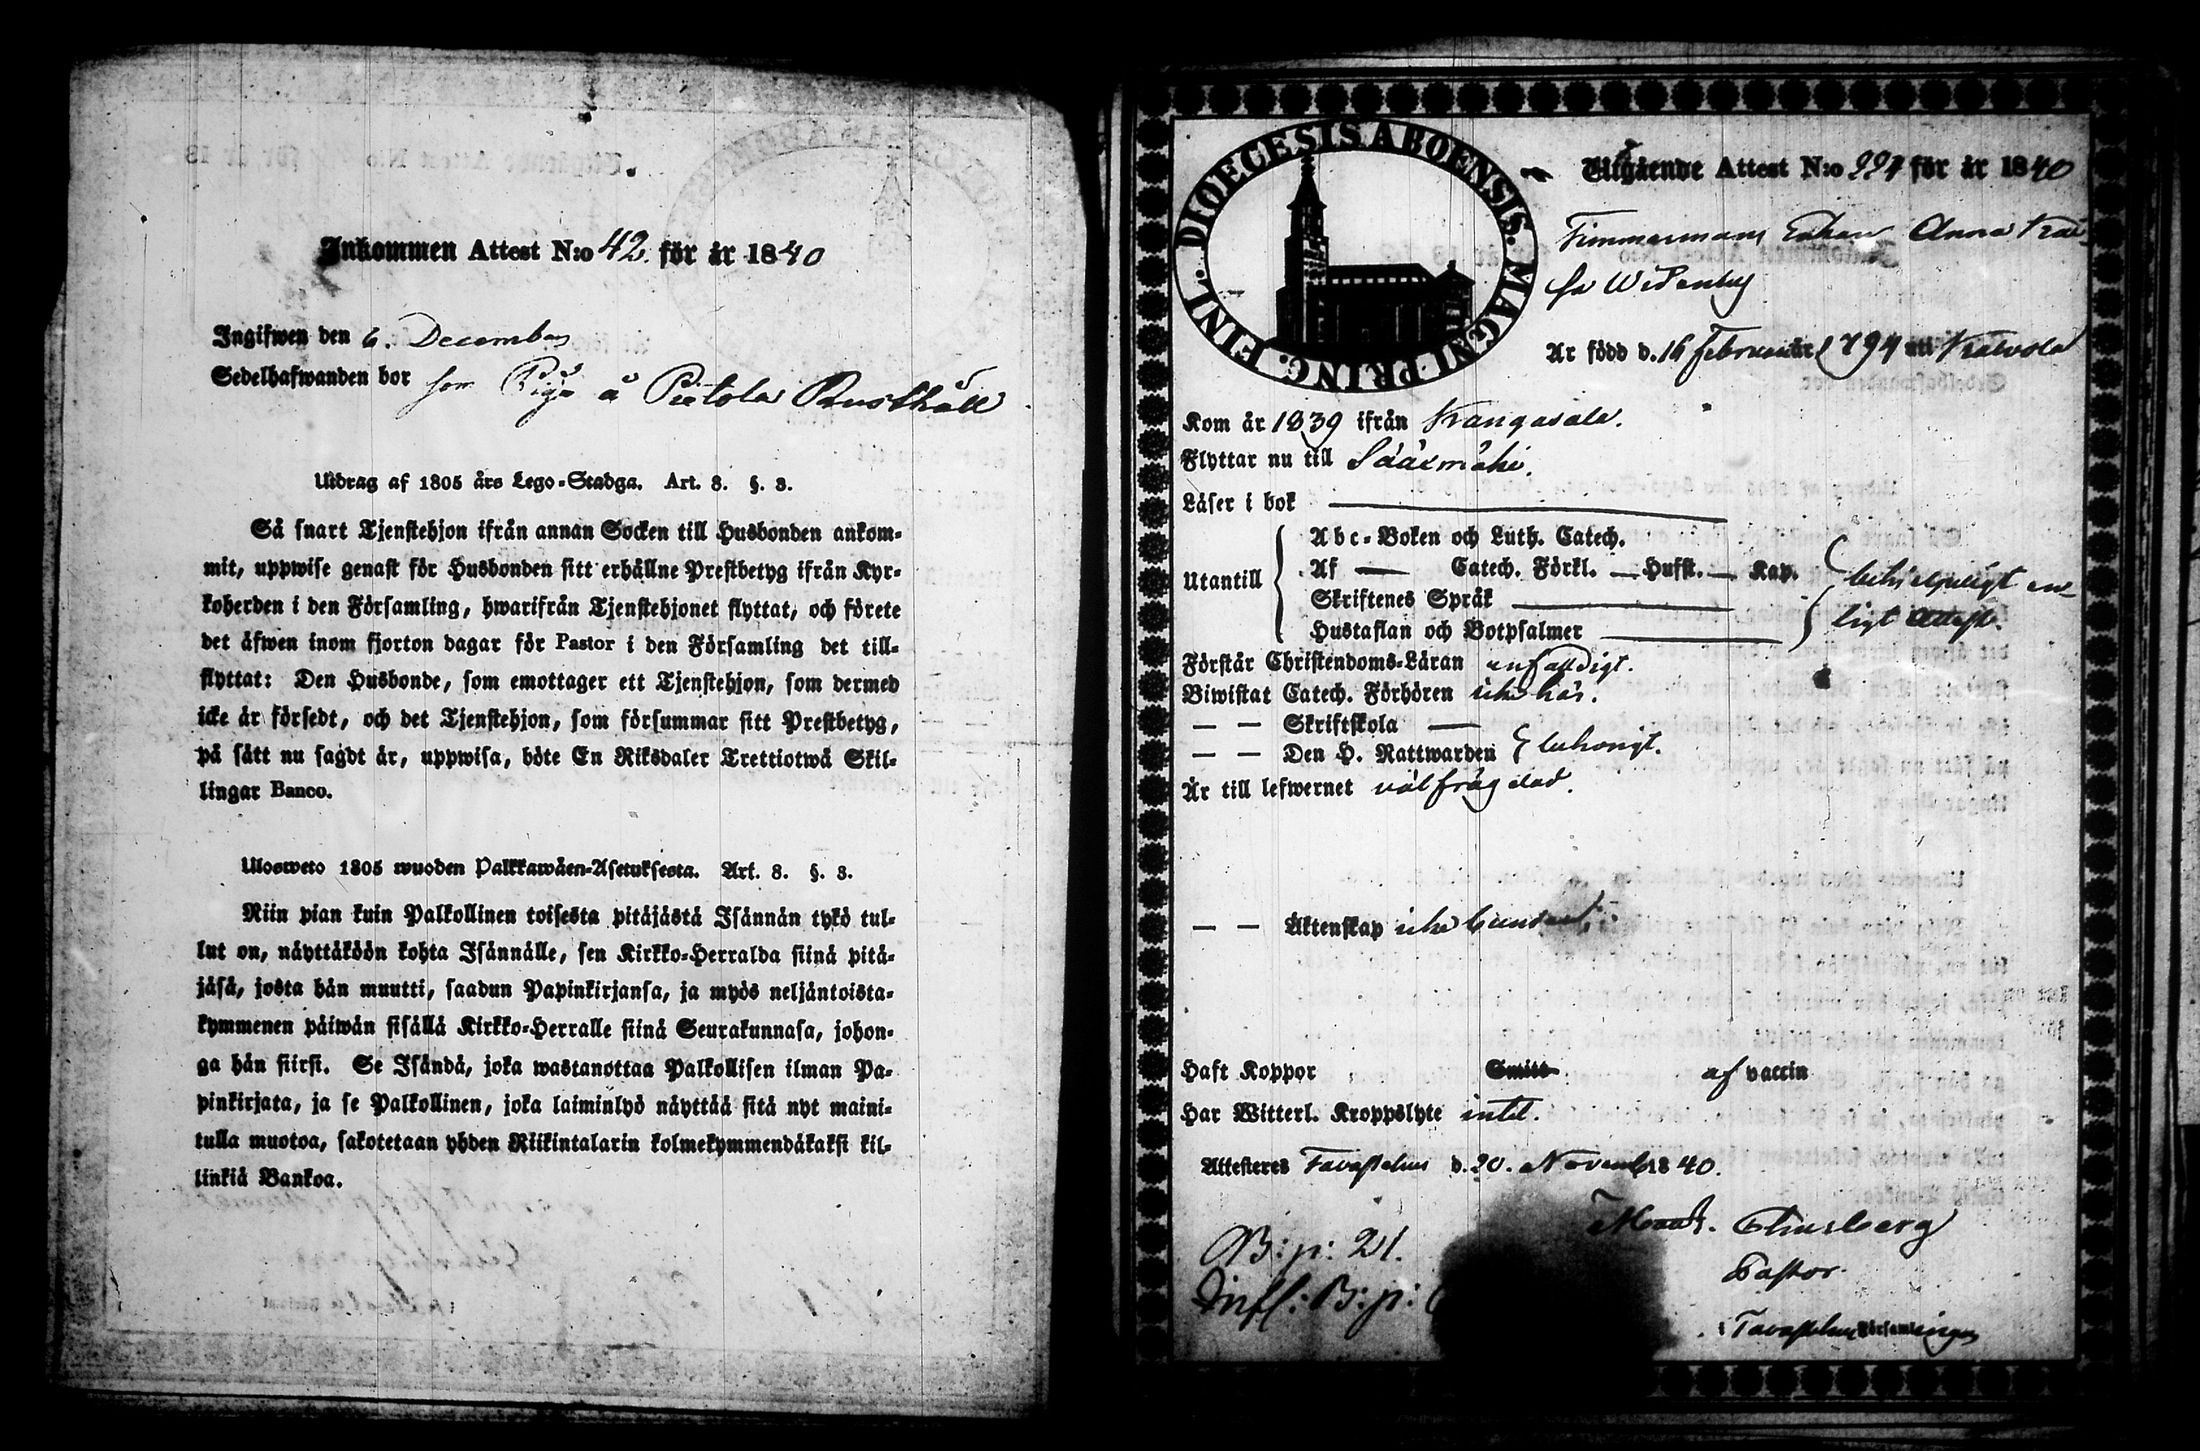 Inkommen Attest N:o 42. för år 1840
Ingifwen den 6. December
Sedelhafwanden bor som Piga å Pietola Rusthåll
Utdrag af 1805 års Lego-Stadga. Art. 8. §. 3.
Så snart Tjenstehjon ifrån annan Socken till Husbonden ankom-
mit, uppwise genast för Husbonden sitt erhållne Prestbetyg ifrån Kyr-
koherden i den Församling, hwarifrån Tjenstehjonet flyttat, och förete
det äfwen inom fjorton dagar för Pastor i den Församling det till-
flyttat: Den Husbonde, som emottager ett Tjenstehjon, som dermed
icke är försedt, och det Tjenstehjon, som försummar sitt Prestbetyg,
på sätt nu sagdt är, uppwisa, böte En Riksdaler Trettiotwå Skil-
lingar Banco.
Ulosweto 1805 wuoden Palkkawäen-Asetuksesta. Art. 8. §. 3.
Niin pian kuin Palkollinen toisesta pitäjästä Isännän tykö tul-
lut on, näyttäköön kohta Isännälle, sen Kirkko-Herralda siinä pitä-
jäsä, josta hän muutti, saadun Papinkirjansa, ja myös neljäntoista-
kymmenen päiwän sisällä Kirkko-Herralle siinä Seurakunnasa, johon-
ga hän siirst. Se Isändä, joka wastanottaa Palkollisen ilman Pa-
pinkirjata, ja se Palkollinen, joka laiminlyö näyttää sitä nyt maini-
tulla muotoa, sakotetaan yhden Riikintalarin kolmekymmendäkaksi kil-
linkiä Bankoa.
DIOECESIS ABOENSIS. MAGNI PRINC. FINL.
Utgående Attest N:o 224 för år 1840
Timmermans Enkan Anna Kai-
sa Widenberg
Är född d. 16 Februari år 1794 uti Kalvola
Kom år 1839 ifrån Kangasala.
Flyttar nu till Sääxmäki.
Läser i bok
Utantill
Abc-Boken och Luth. Catech.
Af Catech. Förkl. Hufst. Kap.
Skriftenes Språk
Hustaflan och Botpsalmer
behjelpeligt en-
ligt Attest.
Förstår Christendoms-Läran enfaldigt.
Biwistat Catech. Förhören icke här.
— — Skriftskola —
— — Den H. Nattwarden behörigt.
Är till lefwernet välfrägdad.
— — Äktenskap icke bunden
Haft Koppor Smitt af vaccin
Har Witterl. Kroppslyte intet.
Attesteres Tavastehus d. 20. Novemb 1840.
Pastor
i Tavastehus Församlingen
B: p: 21.
Infl: B: p: